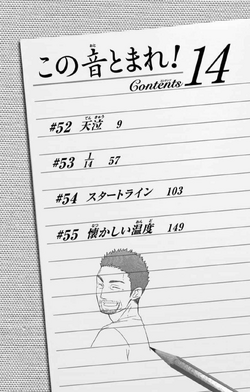 この音とまれ! 14
Contents
#52 天泣 9
#53 1/14 57
#54 スタートライン 103
#55 懐かしい温度 149